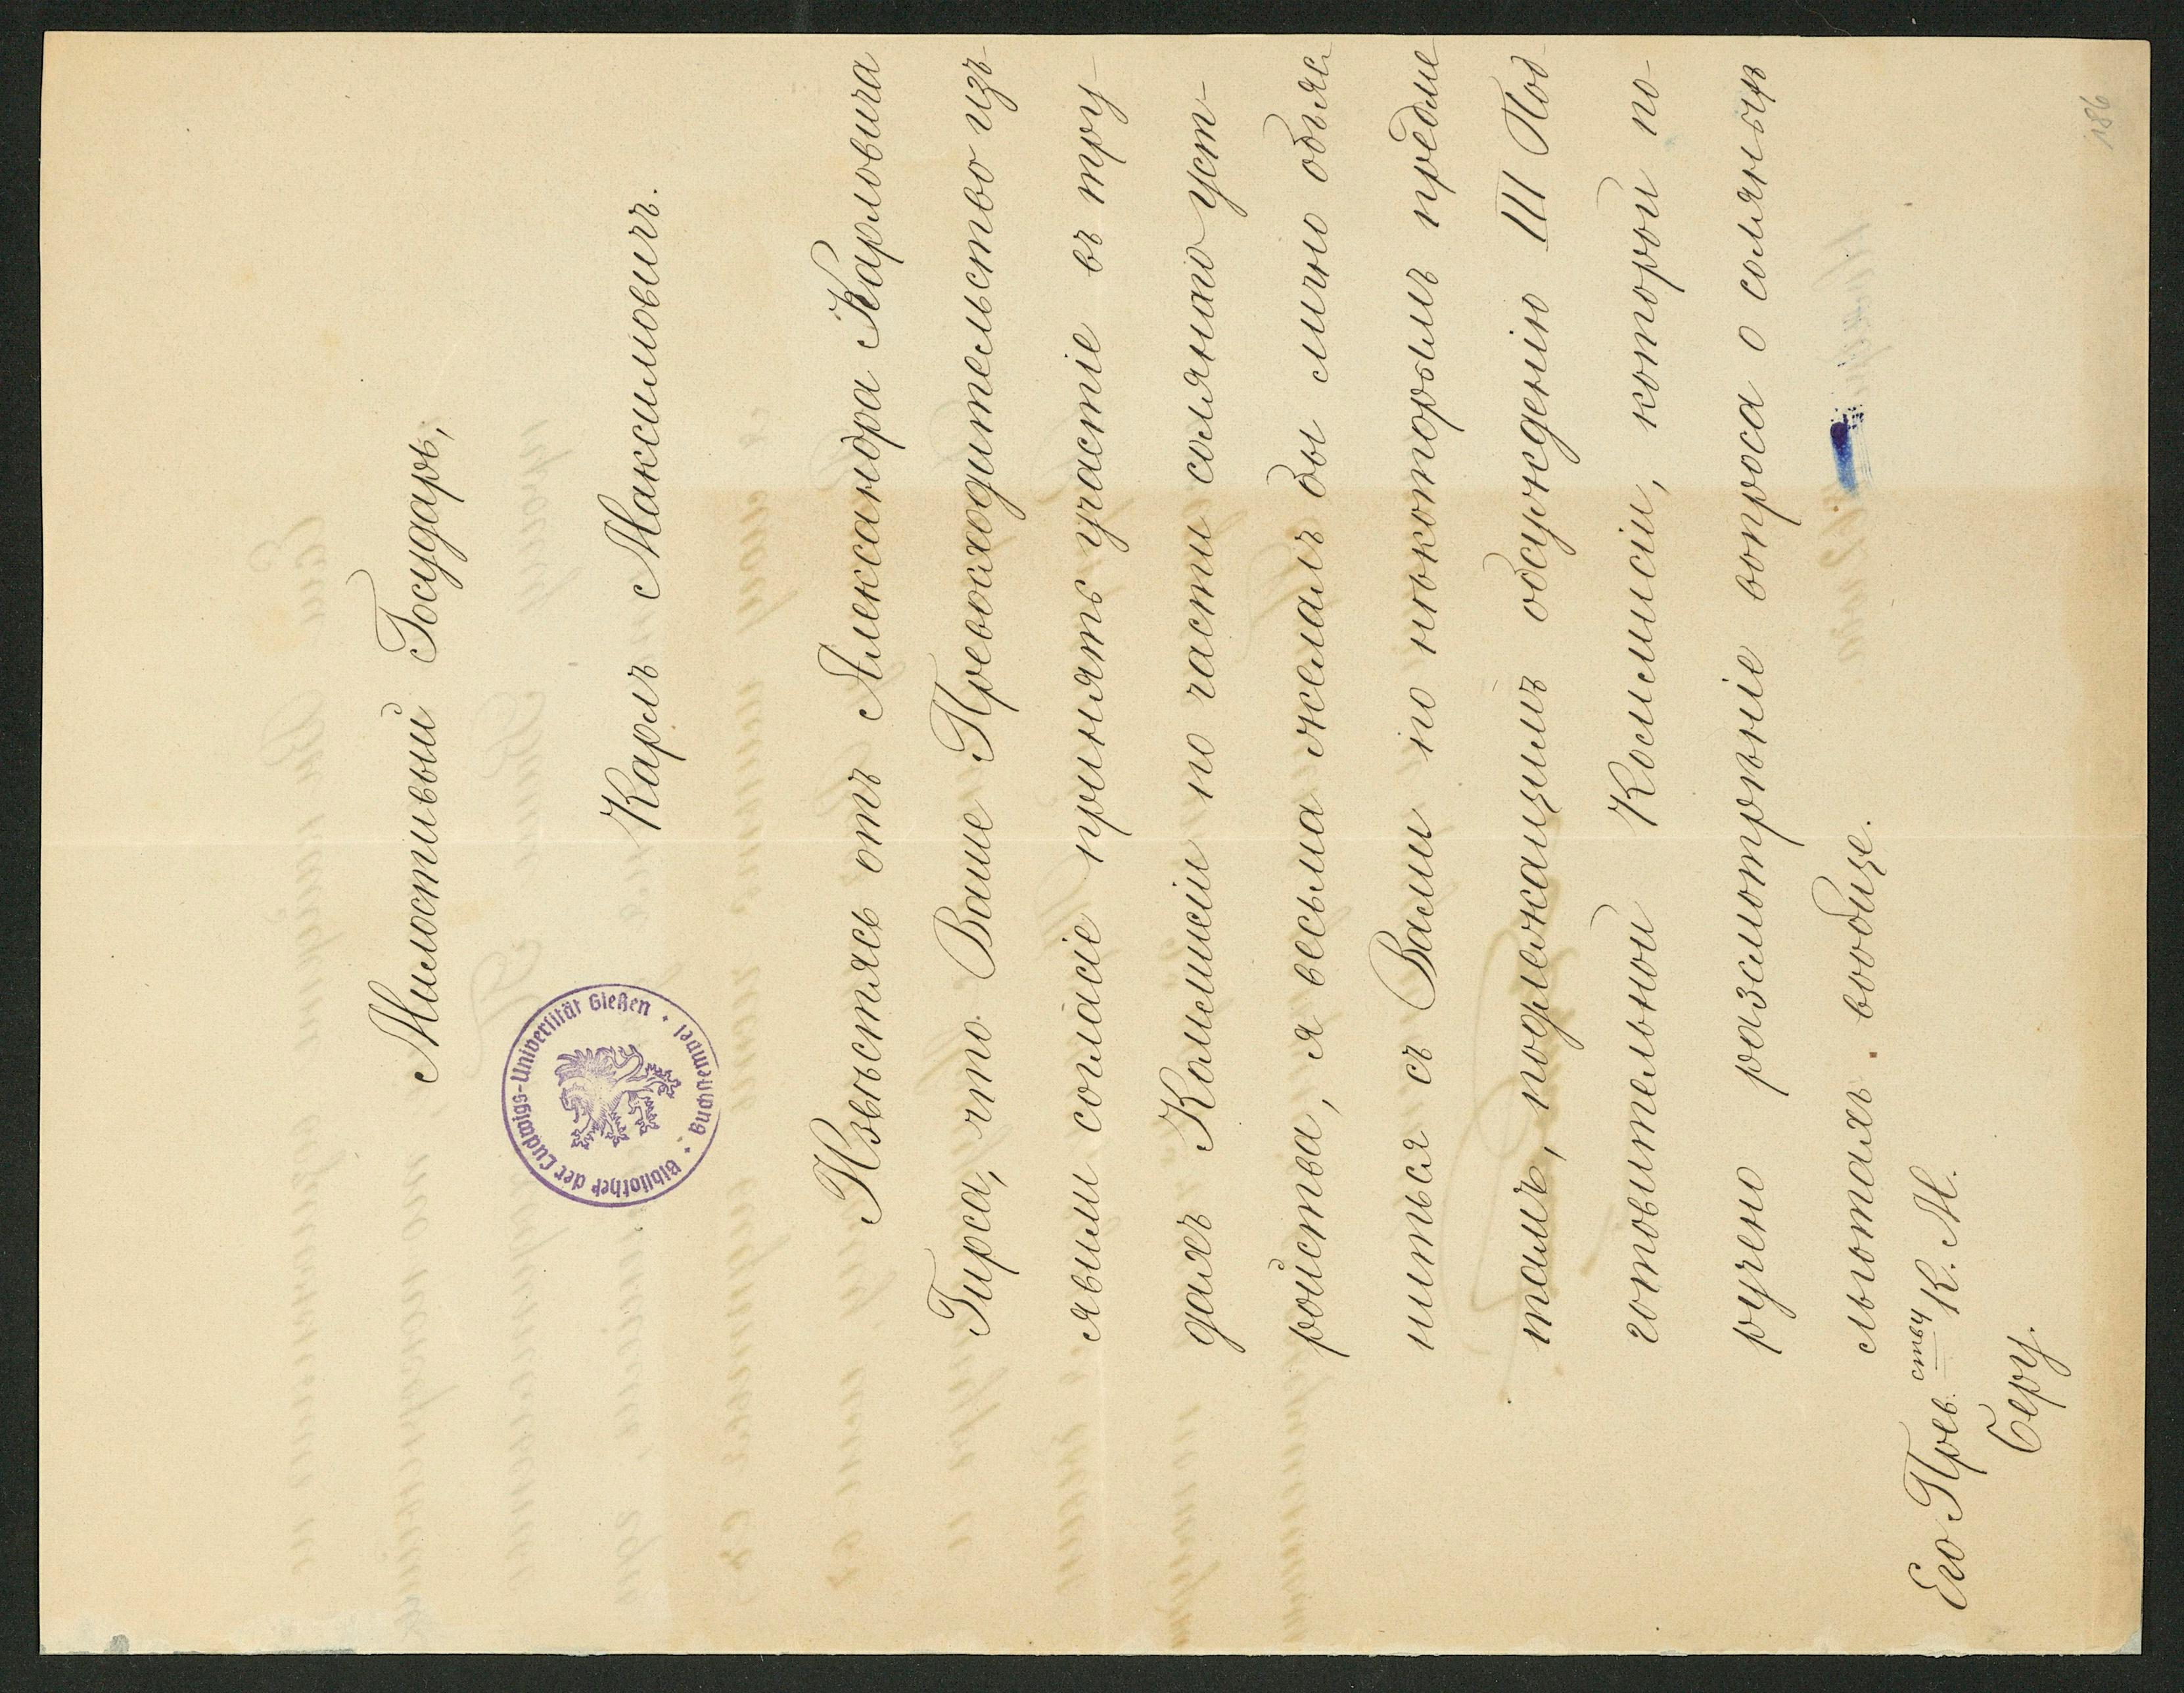 Милостивый Государь,
Карлъ Максимовичъ.
Извѣстясь отъ Александра Карловича
Гирса, что Ваше Превосходительство изъ-
явили согласіе принять участіе въ тру-
дахъ Коммисіи по части солянаго уст-
ройства, я весьма желалъ бы лично объяс-
ниться съ Вами по нѣкоторымъ предме-
тамъ, подлежащимъ обсужденію III Под-
готовительной Коммисіи, которой по-
ручено разсмотрѣніе вопроса о соляныхъ
льготахъ вообще.
Его Прев.ству К. М.
Беру.
Bibliothek der Ludwigs-Universität Gießen · Buchnamei ·
186